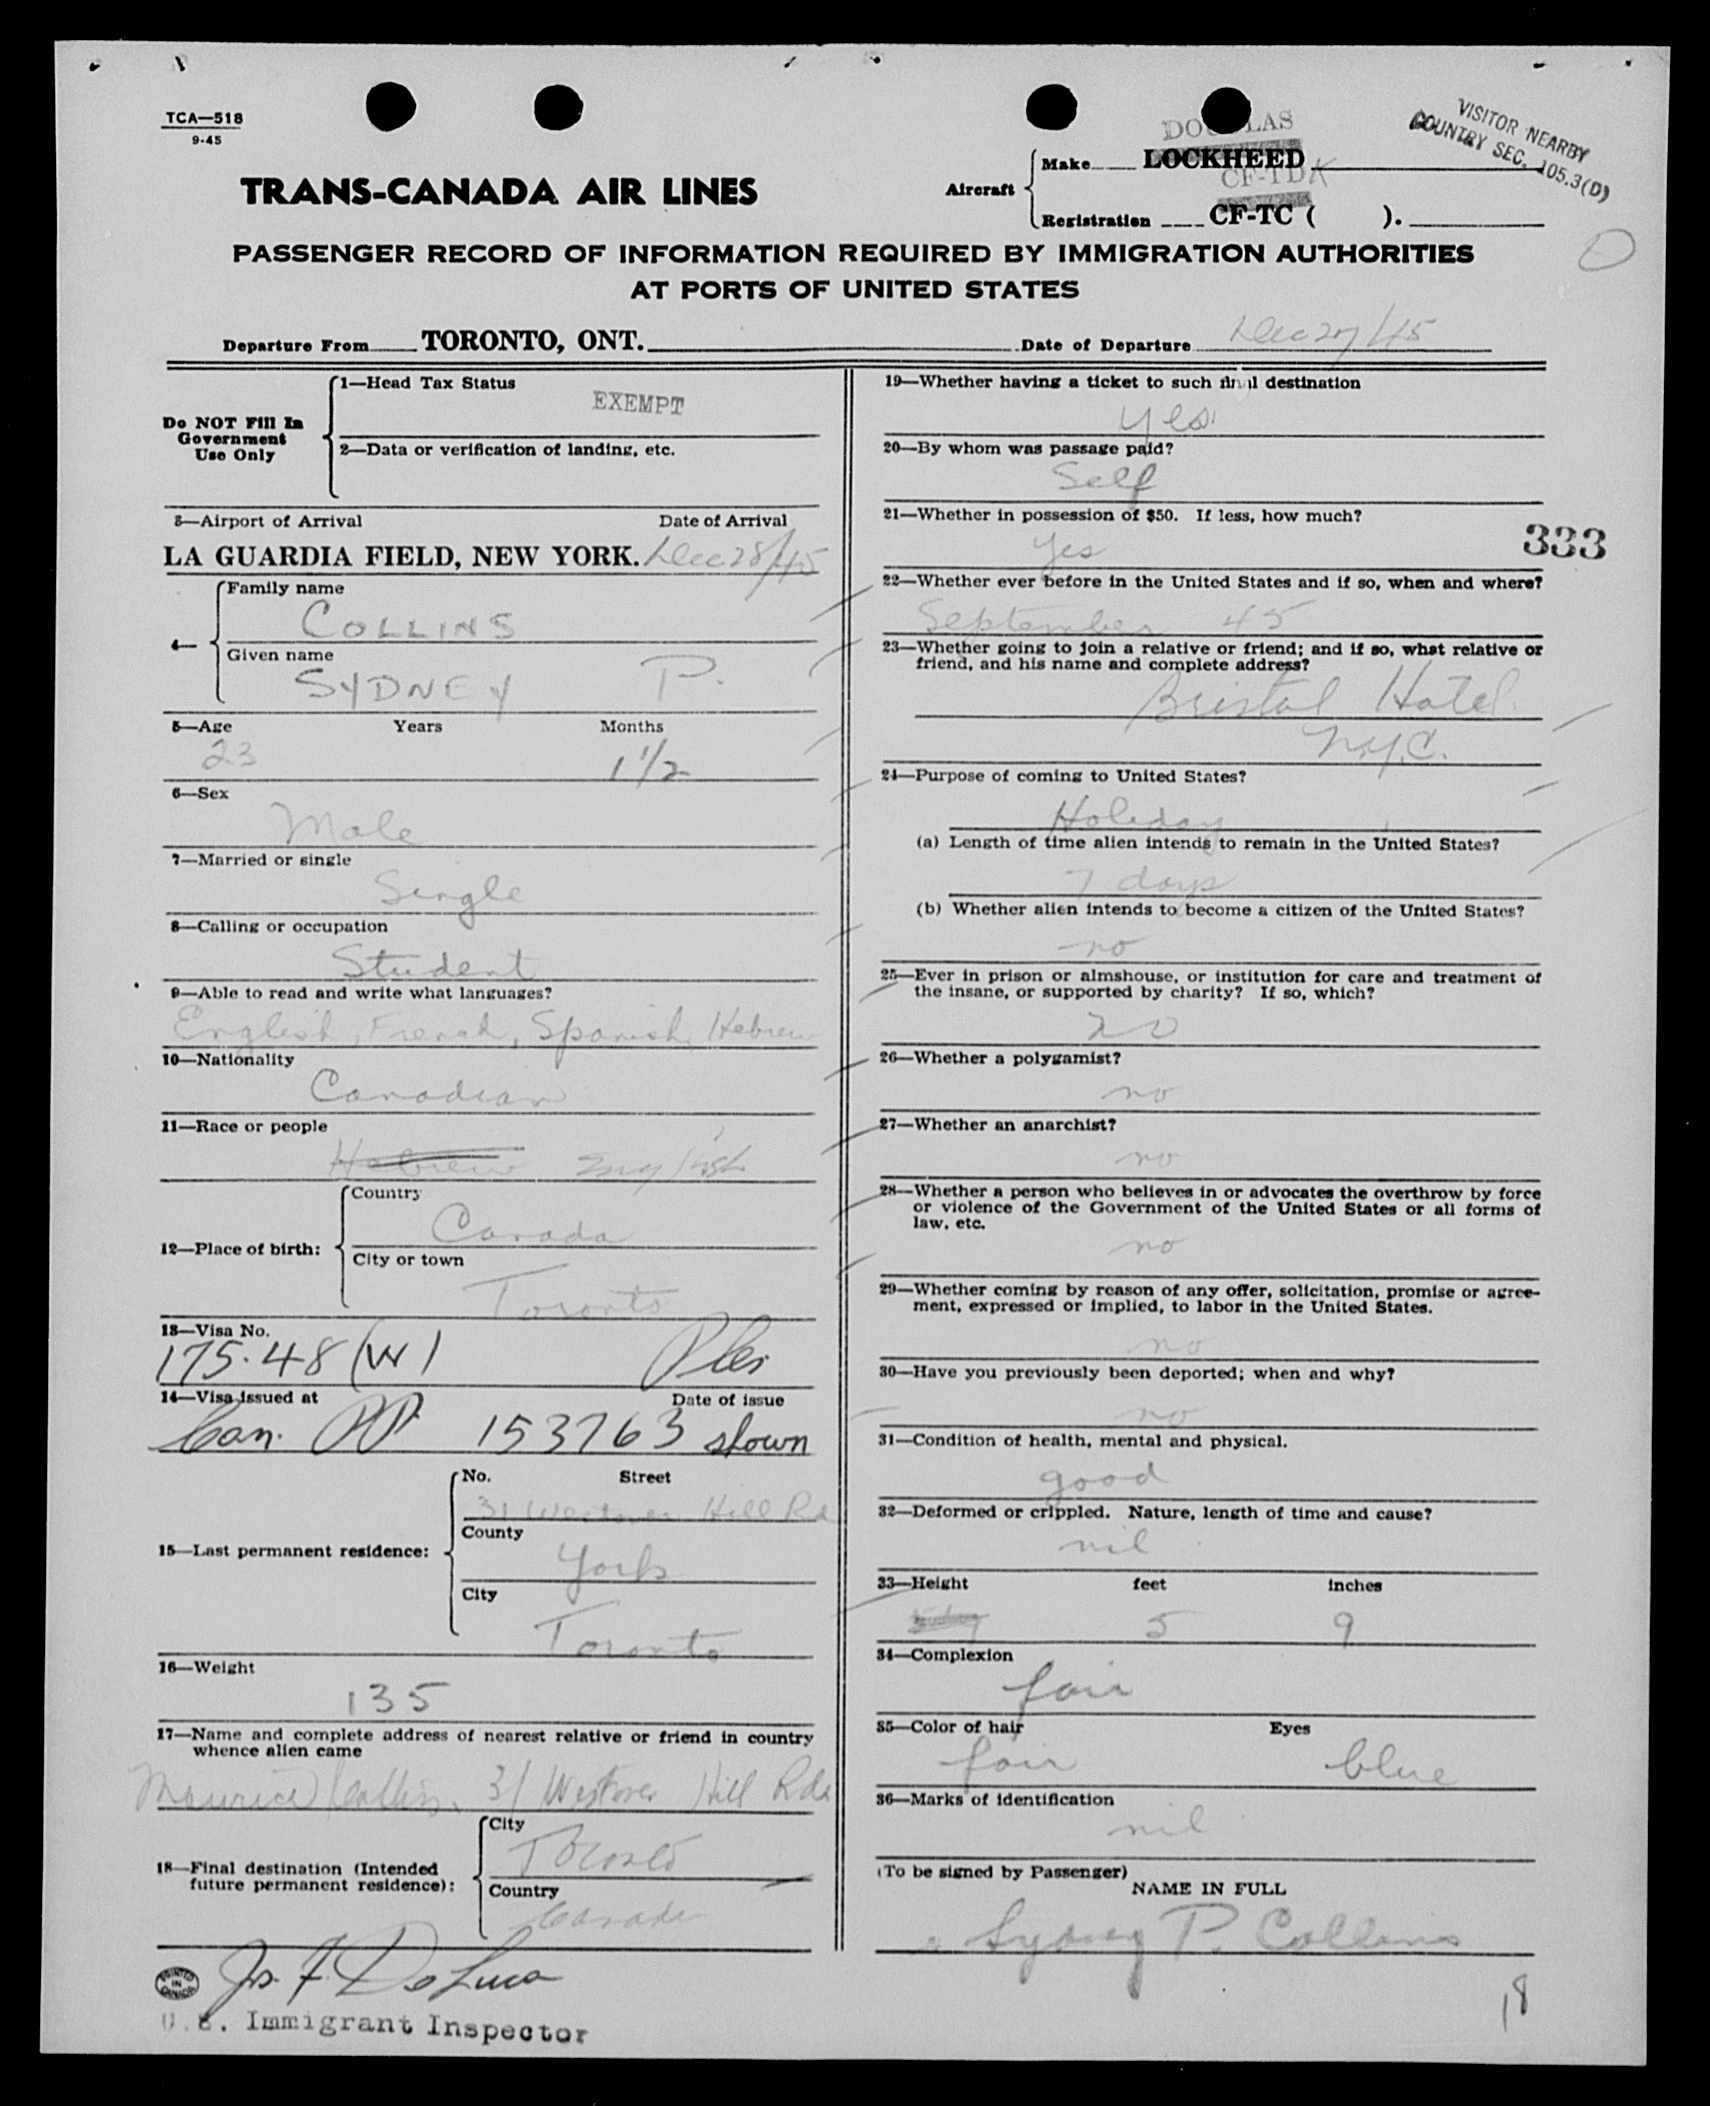 TCA—518
9-45
VISITOR NEARBY
COUNTRY SEC. 105.3(D)
DOUGLAS
Aircraft
Make LOCKHEED
CF-TDK
Registration CF-TC ( ).
TRANS-CANADA AIR LINES
PASSENGER RECORD OF INFORMATION REQUIRED BY IMMIGRATION AUTHORITIES
AT PORTS OF UNITED STATES
Departure From TORONTO, ONT. Date of Departure Dec 27/45
Do NOT Fill In
Government
Use Only
1—Head Tax Status
EXEMPT
2—Data or verification of landing, etc.
3—Airport of Arrival Date of Arrival
LA GUARDIA FIELD, NEW YORK. Dec 28/45
4—
Family name
COLLINS
Given name
SYDNEY P.
5—Age Years Months
23 1 1/2
6—Sex
Male
7—Married or single
Single
8—Calling or occupation
Student
9—Able to read and write what languages?
English, French, Spanish, Hebrew
10—Nationality
Canadian
11—Race or people
Hebrew English
12—Place of birth:
Country
Canada
City or town
Toronto
13—Visa No.
175.48 (W)
14—Visa issued at Date of issue
Can. PP 153763 shown
15—Last permanent residence:
No. Street
31 Westover Hill Rd
County
York
City
Toronto
16—Weight
135
17—Name and complete address of nearest relative or friend in country
whence alien came
Maurice Collins, 31 Westover Hill Rd
18—Final destination (Intended
future permanent residence):
City
Toronto
Country
Canada
Jos. F. DeLuca
PRINTED
IN
CANADA
U.S. Immigrant Inspector
19—Whether having a ticket to such final destination
yes
20—By whom was passage paid?
Self
21—Whether in possession of $50. If less, how much?
yes
333
22—Whether ever before in the United States and if so, when and where?
September 45
23—Whether going to join a relative or friend; and if so, what relative or
friend, and his name and complete address?
Bristol Hotel
N.Y.C.
24—Purpose of coming to United States?
Holiday
(a) Length of time alien intends to remain in the United States?
7 days
(b) Whether alien intends to become a citizen of the United States?
no
25—Ever in prison or almshouse, or institution for care and treatment of
the insane, or supported by charity? If so, which?
no
26—Whether a polygamist?
no
27—Whether an anarchist?
no
28—Whether a person who believes in or advocates the overthrow by force
or violence of the Government of the United States or all forms of
law, etc.
no
29—Whether coming by reason of any offer, solicitation, promise or agree-
ment, expressed or implied, to labor in the United States.
no
30—Have you previously been deported; when and why?
no
31—Condition of health, mental and physical.
good
32—Deformed or crippled. Nature, length of time and cause?
nil
33—Height feet inches
5 9
34—Complexion
fair
35—Color of hair Eyes
fair blue
36—Marks of identification
nil
(To be signed by Passenger)
NAME IN FULL
Sydney P. Collins
18